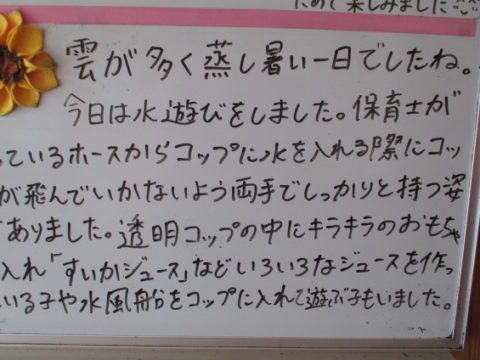 ためて楽しみました
雲が多く蒸し暑い一日でしたね。
今日は水遊びをしました。保育士が
っているホースからコップに水を入れる際にコッ
が飛んでいかないよう両手でしっかりと持つ姿
ありました。透明コップの中にキラキラのおもちゃ
入れ「すいかジュース」などいろいろなジュースを作っ
いる子や水風船をコップに入れて遊ぶ子もいました。